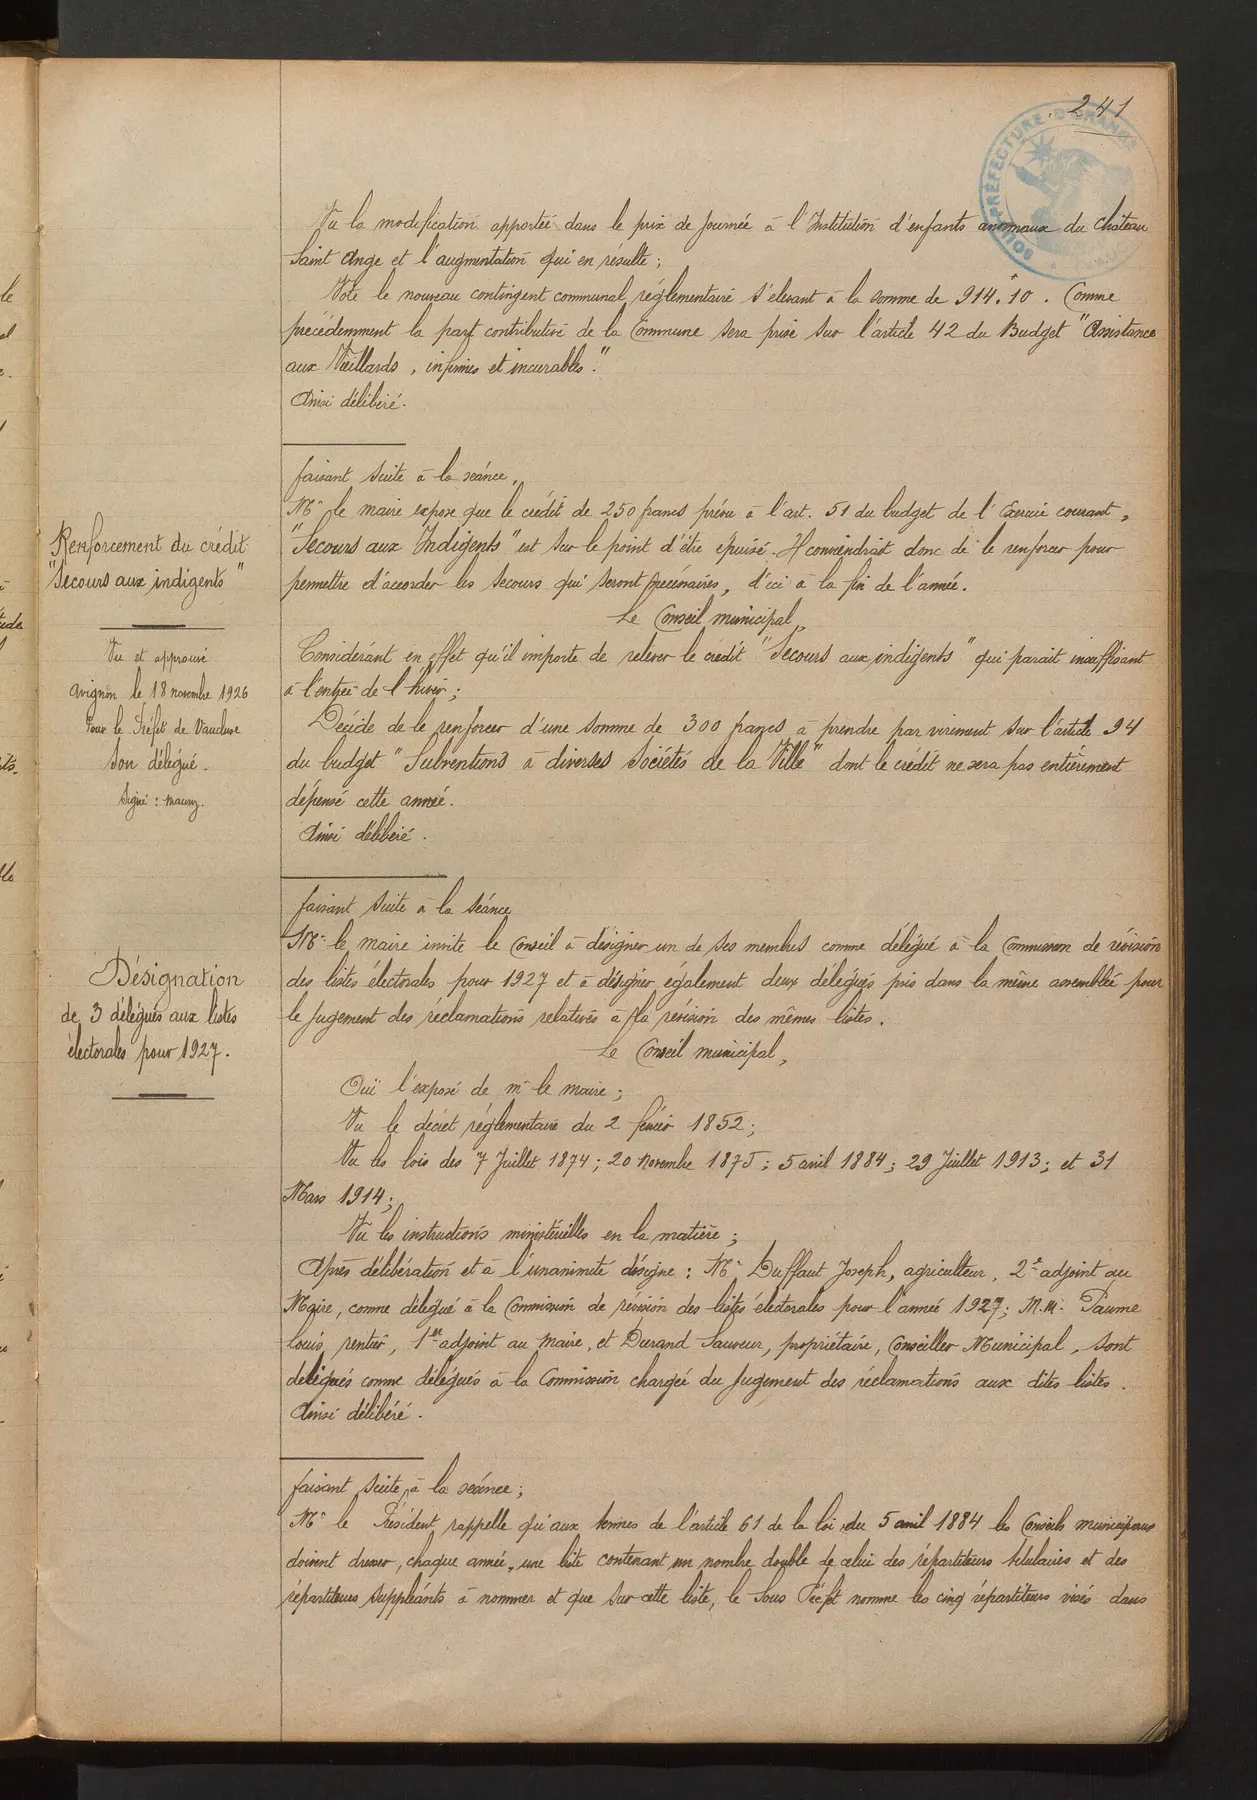 241
SOUS-PRÉFECTURE D'ORANGE
Vu la modification apportée dans le prix de journée à l'Institution d'enfants anormaux du Château
Saint Ange et l'augmentation qui en résulte ;
Vote le nouveau contingent communal réglementaire s'élevant à la somme de 914.f10. Comme
précédemment la part contributive de la Commune sera prise sur l'article 42 du Budget "Assistance
aux Vieillards, infirmes et incurables".
Ainsi délibéré.
faisant suite à la séance,
Mr le maire expose que le crédit de 250 francs prévu à l'art. 51 du budget de l'Exercice courant,
"Secours aux Indigents" est sur le point d'être épuisé. Il conviendrait donc de le renforcer pour
permettre d'accorder les secours qui seront nécessaires, d'ici à la fin de l'année.
Le Conseil municipal,
Considérant en effet qu'il importe de relever le crédit "Secours aux indigents" qui parait insuffisant
à l'entrée de l'hiver ;
Décide de le renforcer d'une somme de 300 francs à prendre par virement sur l'article 94
du budget "Subventions à diverses Sociétés de la Ville" dont le crédit ne sera pas entièrement
dépensé cette année.
Ainsi délibéré.
Renforcement du crédit
"Secours aux indigents"
Vu et approuvé
Avignon le 18 novembre 1926
Pour le Préfet de Vaucluse
Son délégué.
Signé :
faisant suite à la séance
Mr le maire invite le Conseil à désigner un de ses membres comme délégué à la Commission de révision
des listes électorales pour 1927 et à désigner également deux délégués pris dans la même assemblée pour
le jugement des réclamations relatives à la révision des mêmes listes.
Le Conseil municipal,
Ouï l'exposé de mr le maire ;
Vu le décret réglementaire du 2 février 1852 ;
Vu les lois des 7 Juillet 1874 ; 20 Novembre 1875 ; 5 avril 1884 ; 29 Juillet 1913 ; et 31
Mars 1914 ;
Vu les instructions ministérielles en la matière ;
Après délibération et à l'unanimité désigne : Mr Duffaut Joseph, agriculteur, 2e adjoint au
Maire, comme délégué à la Commission de révision des listes électorales pour l'année 1927 ; M.M. Paume
Louis, rentier, 1er adjoint au Maire, et Durand Sauveur, propriétaire, Conseiller Municipal, sont
délégués comme délégués à la Commission chargée du Jugement des réclamations aux dites listes.
Ainsi délibéré.
Désignation
de 3 délégués aux listes
électorales pour 1927.
faisant suite à la séance ;
Mr le Président rappelle qu'aux termes de l'article 61 de la loi du 5 avril 1884 les Conseils municipaux
doivent dresser, chaque année, une liste contenant un nombre double de celui des répartiteurs titulaires et des
répartiteurs suppléants à nommer et que sur cette liste, le Sous Préfet nomme les cinq répartiteurs visés dans